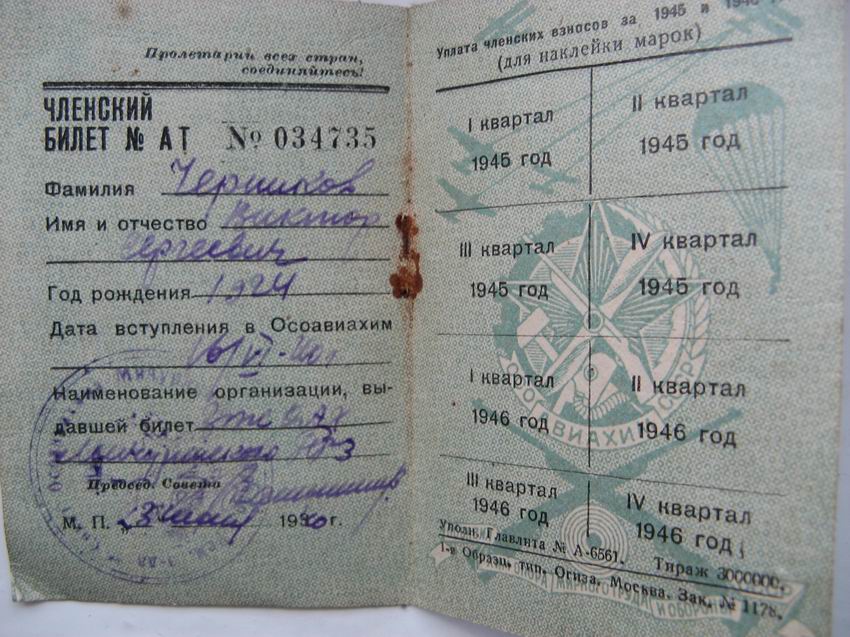 Пролетарии всех стран,
соединяйтесь!
ЧЛЕНСКИЙ
БИЛЕТ № АТ № 034735
Фамилия Черников
Имя и отчество Виктор
Сергеевич
Год рождения 1924
Дата вступления в Осоавиахим
Наименование организации, вы-
давшей билет
Председ. Совета
М. П. 19 г.
Уплата членских взносов за 1945 и
(для наклейки марок)
I квартал
1945 год
II квартал
1945 год
III квартал
1945 год
IV квартал
1945 год
I квартал
1946 год
II квартал
1946 год
III квартал
1946 год
IV квартал
1946 год
ОСОАВИАХИМ СССР
Уполн. Главлита № А-6561. Тираж 3000000.
1-я Образц. тип. Огиза. Москва. Зак. № 1178.
МИРНОГО ТРУДА И ОБОРОНЫ